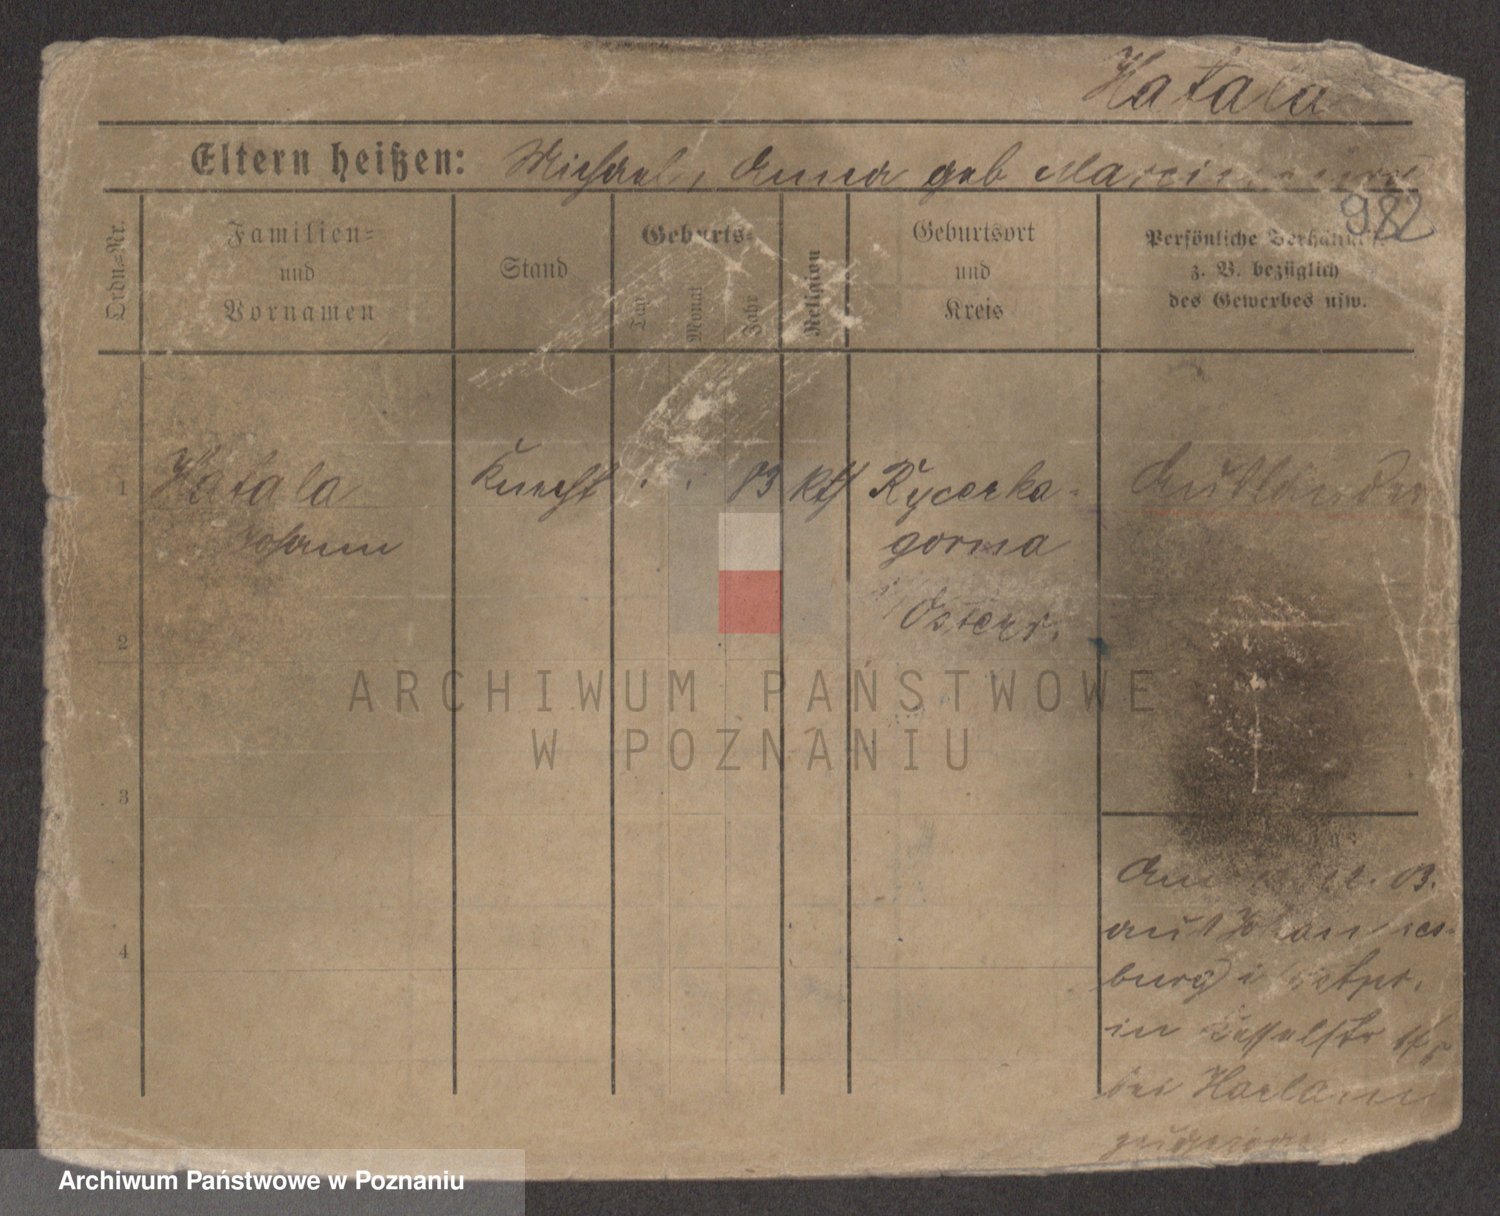 Hatala
Eltern heißen: Michael, Anna geb
982
Ordn.=Nr.
Familien=
und
Vornamen
Stand
Geburts=
Tag
Monat
Jahr
Religion
Geburtsort
und
Kreis
Persönliche Verhältnisse
z. B. bezüglich
des Gewerbes usw.
1
Hatala
Johann
Knecht
83
kth
Rycerka-
gorna
i/ Österr.
Ausländer
2
3
4
Am 03.
aus Johannes-
burg i Ostpr.
in
bei
ARCHIWUM PAŃSTWOWE
W POZNANIU
Archiwum Państwowe w Poznaniu